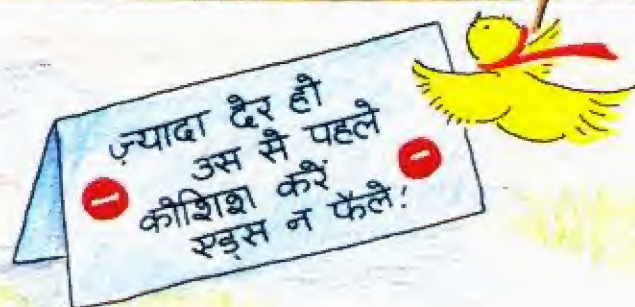 ज़्यादा देर हो
उस से पहले
कोशिश करें
एड्स न फैले!